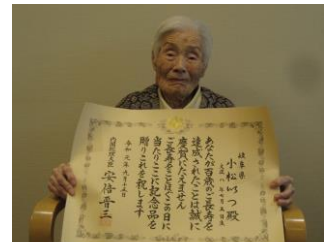 岐阜県
小松いつ殿
あなたが百歳のご長寿を
達成されたことは誠に
慶賀にたえません
ご長寿をことほぐこの日に
当たりここに記念品を
贈りこれを祝します
令和元年九月十五日
内閣総理大臣 安倍晋三